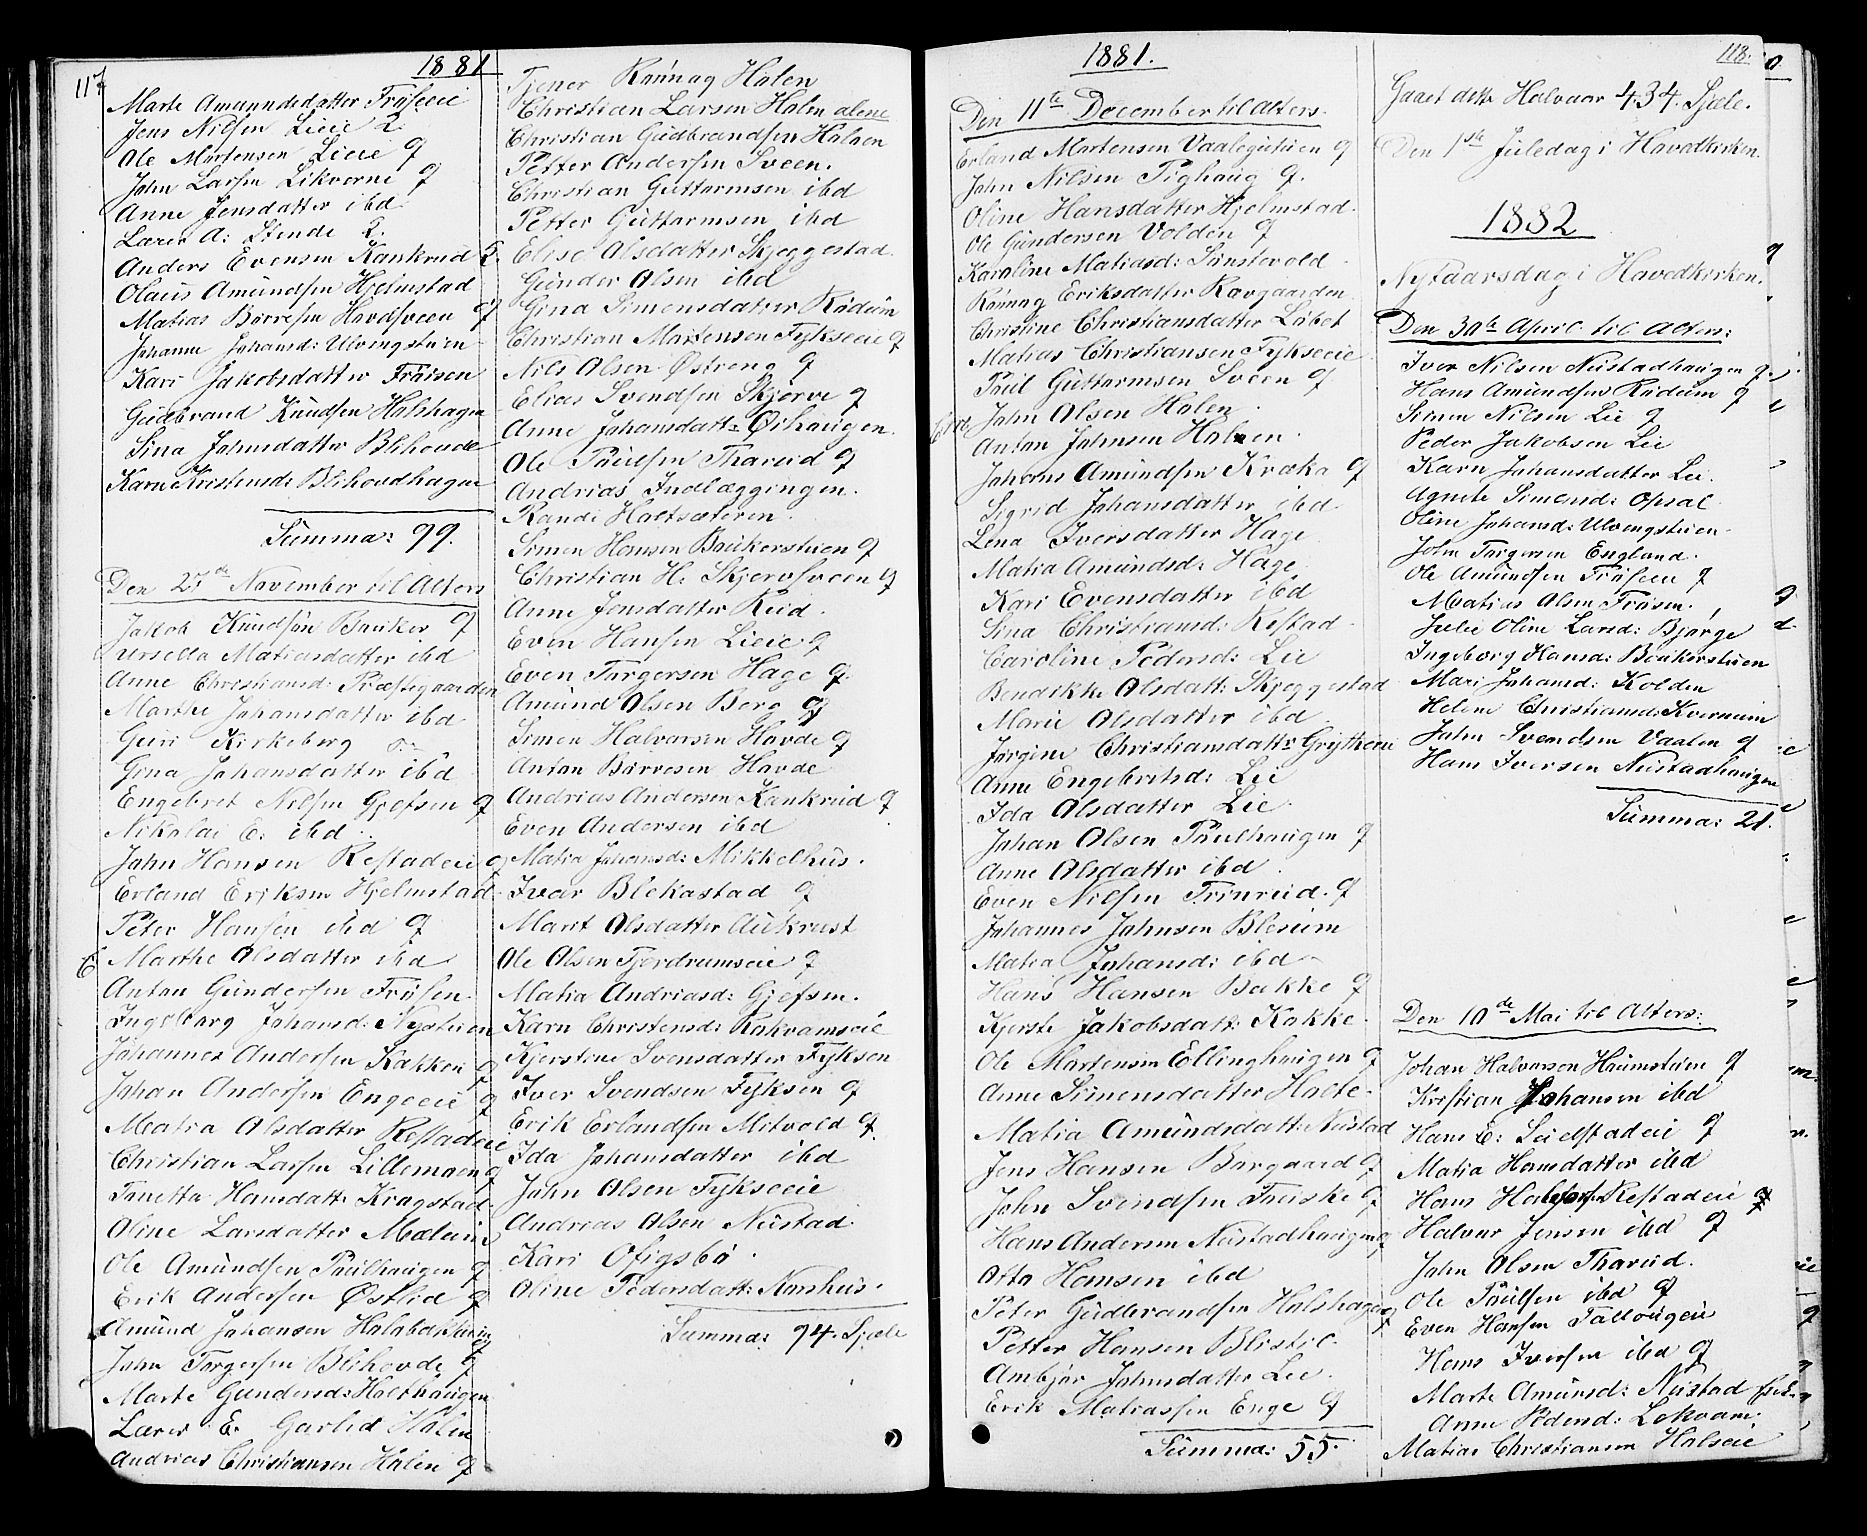 117
1881
Marte Amundsdatter Frøiseeie
Jens Nilsen Lieie 2.
Ole Mortensen Lieie q
John Larsen Likverne q
Anne Jensdatter ibd
Lærer A: Stende 2.
Anders Evensen Kankrud 2.
Olaus Amundsen Hjelmstad
Matias Børresen Hovdsveen q
Johanne Johansd: Ulvengstuen
Kari Jakobsdatter Frøisen
Gudbrand Knudsen Halshagen
Sina Johnsdatter Blihovde
Karn Kristensd: Blihovdhagen
Summa: 99.
Den 27de November til Alters
Jakob Knudsøn Bauker q
Ursella Matiasdatter ibd
Anne Christiansd: Præstegaarden
Marthe Johansdatter ibd
Guri Kirkeberg
Gina Johansdatter ibd
Engebret Nilsen Gjefsen q
Nikolai E: ibd
John Hansen Restadeie q
Erland Eriksen Hjelmstad
Peter Hansen ibd q
Marthe Olsdatter ibd
Anton Gundersen Frøisen
Ingeborg Johansd: Nystuen
Johannes Andersen Kakken q
Johan Andersen Engeeie q
Matia Olsdatter Restadeie
Christian Larsen Lillemoen q
Tanetta Hansdatt: Kragstad
Oline Larsdatter Mælum
Ole Amundsen Paulhaugen q
Erik Andersen Østlid q
Amund Johansen Halabakken q
John Torgersen Blihovde q
Marte Gundersd: Holthaugen
Lærer E. Garlid Holen
Andrias Christiansen Holen q
Tjener Raunag Holen
Christian Larsen Holen alene
Christian Gudbrandsen Holsen
Petter Andersen Sveen.
Christian Guttormsen ibd
Petter Guttormsen ibd
Elise Olsdatter Skjeggestad
Gunder Olsen ibd
Gina Simensdatter Rudum
Christian Mortensen Fykseeie q
Nils Olsen Østreng q
Elias Svendsen Skjerve q
Anne Johansdatt: Øihaugen.
Ole Paulsen Tharud q
Andrias Indlæggingen.
Randi Holtsæteren.
Simen Hansen Baukerstuen q
Christian H: Skjervsveen q
Anne Jensdatter Rud.
Even Hansen Lieie q
Even Torgersen Hage q.
Amund Olsen Berg q
Simen Halvorsen Hovde q
Anton Børresen Hovde
Andrias Andersen Kankrud q
Even Andersen ibd
Matia Johansd: Mikkelhus.
Ivar Blekastad q
Marit Olsdatter Aukrust
Ole Olsen Fjerdrumseie q
Matia Andriasd: Gjefsen.
Karn Christensd: Kakvamseie
Kjerstene Svensdatter Fyksen
Iver Svendsen Fyksen q
Erik Erlandsen Mitvold q.
Ida Johansdatter ibd
John Olsen Fykseeie
Andrias Olsen Nustad
Kari Ofigsbø.
Oline Pedersdatt: Nordhus.
Summa: 94. Sjæle
1881.
118.
Den 11te December til Alters.
Erland Mortensen Vaalegutuen q
John Nilsen Pighaug q.
Oline Hansdatter Hjelmstad.
Ole Gundersen Volden q
Karoline Matiasd: Sønstevold
Raunag Eriksdatter Rovgaarden
Christine Christiansdatter Løbet
Matias Christiansen Fykseeie
Paul Guttormsen Sveen q
John Olsen Holen.
Anton Johnsen Holmen.
Johans Amundsen Kræke q
Sigrid Johansdatter ibd
Lena Iversdatter Hage
Matia Amundsd: Hage
Kari Evensdatter ibd
Sina Christiansd: Restad
Caroline Pedersd: Lie
Bendikke Olsdatt: Skjeggestad
Marie Olsdatter ibd
Jørgine Christiansdatt: Gryttem
Anne Engebretsd: Lie
Ida Olsdatter Lie.
Johan Olsen Paulhaugen q
Anne Olsdatter ibd.
Even Nilsen Trinrud. q
Johannes Johnsen Blesum
Matia Johansd: ibd
Hans Hansen Bakke q
Kjersti Jakobsdatt: Kakke.
Ole Mortensen Ellinghaugen q
Anne Simensdatter Holte.
Matia Amundsdatt: Nustad
Jens Hansen Borgaard q
John Svendsen Fruske q
Hans Andersen Nustadhaugen q
Otto Hansen ibd
Peter Gudbrandsen Halshagen q
Petter Hansen Blistil.
Ambjør Johnsdatter Lie.
Erik Matiassen Enge q
Summa: 55.
Gaaet dette Halvaar 434. Sjæle.
Den 1ste Juledag i Hovedkirken.
1882
Nytaarsdag i Hovedkirken.
Den 30te April til Alters:
Iver Nilsen Nustadhaugen q.
Hans Amundsen Rudum q
Simen Nilsen Lie q
Peder Jakobsen Lie
Karn Johansdatter Lie.
Agnete Simensd: Opsal
Oline Johansd: Ulvengstuen
John Torgersen England.
Ole Amundsen Frøiseeie q
Matias Olsen Frøisen.
Julie Oline Larsd: Bjørge
Ingeborg Hansd: Baukerstuen
Mari Johansd: Kolden
Helene Christiansd: Kvernum
John Svendsen Vaalen q
Hans Iversen Nustadhaugen
Summa: 21.
Den 10de Mai til Alters:
Johan Halvorsen Haumstuen q
Kristian Johansen ibd
Hans E: Suelstadeie q
Matia Hansdatter ibd
Hans Halvorsen Restadeie q
Halvor Jensen ibd q
John Olsen Tharud.
Ole Paulsen ibd q
Even Hansen Tallougeie
Hans Iversen ibd q
Marte Amunsd: Nustad
Anne Pedersd: Lokvam.
Matias Christiansen Halseie